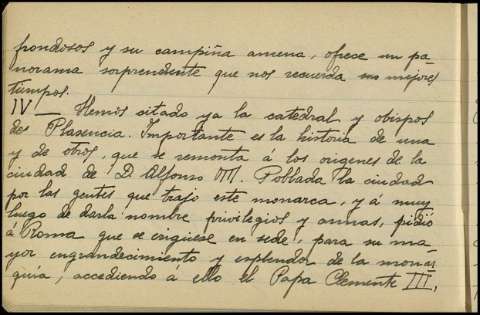 frondosos y su campiña amena, ofrece un pa-
norama sorprendente que nos recuerda sus mejores
tiempos.
IV — Hemos citado ya la catedral y obispos
de Plasencia. Importante es la historia de una
y de otros, que se remonta á los origenes de la
ciudad de D. Alfonso VIII. Poblada la ciudad
por las gentes que trajo este monarca, y á muy
luego de darla nombre privilegios y armas, pidió
á Roma que se erigiese en sede, para su ma-
yor engrandecimiento y esplendor de la monar-
quía, accediendo á ello el Papa Clemente III,